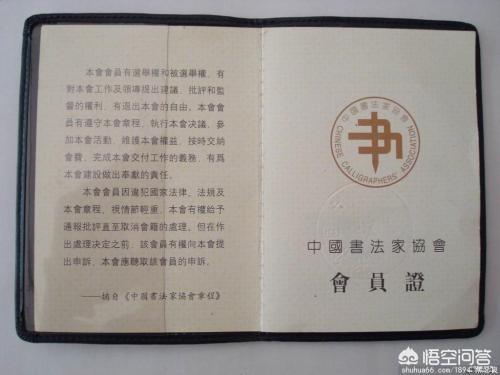 本會會員有選舉權和被選舉權，有
對本會工作及領導提出建議、批評和監
督的權利，有退出本會的自由。本會會
員有遵守本會章程、執行本會決議、參
加本會活動、維護本會權益、按時交納
會費、完成本會交付工作的義務，有爲
本會建設做出奉獻的責任。
本會會員因違犯國家法律、法規及
本會章程，視情節輕重，本會有權給予
通報批評直至取消會籍的處理。但在作
出處理決定之前，該會員有權向本會提
出申訴，本會應聽取該會員的申訴。
——摘自《中國書法家協會章程》
中國書法家協會
CHINESE CALLIGRAPHERS' ASSOCIATION
中國書法家協會
會員證
悟空问答